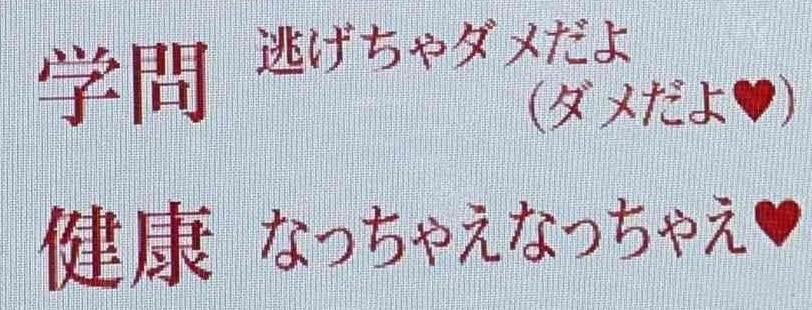 学問 逃げちゃダメだよ
(ダメだよ♥)
健康 なっちゃえなっちゃえ♥